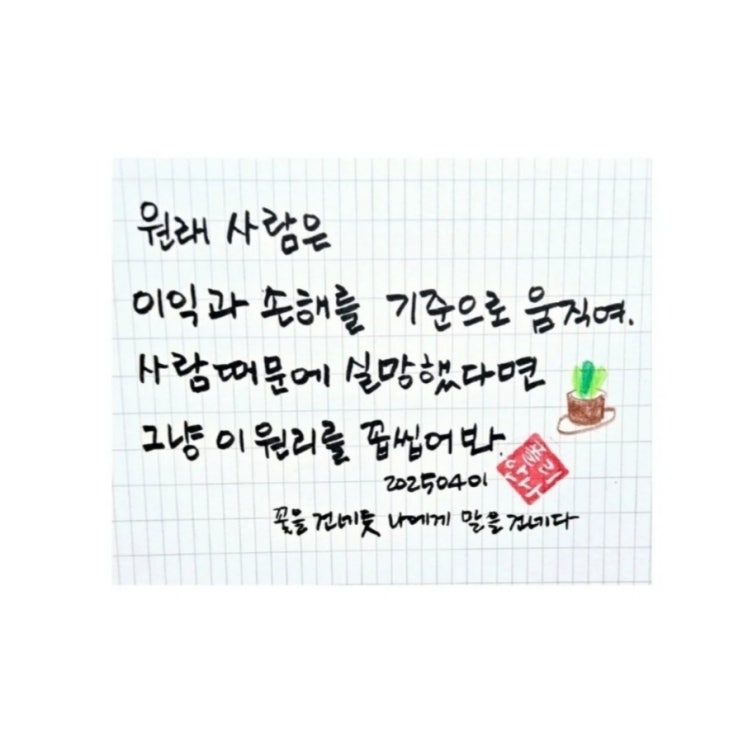 원래 사람은
이익과 손해를 기준으로 움직여.
사람때문에 실망했다면
그냥 이 원리를 꼽씹어봐.
20250401
폴리
안나
꽃을 건네듯 나에게 말을 건네다